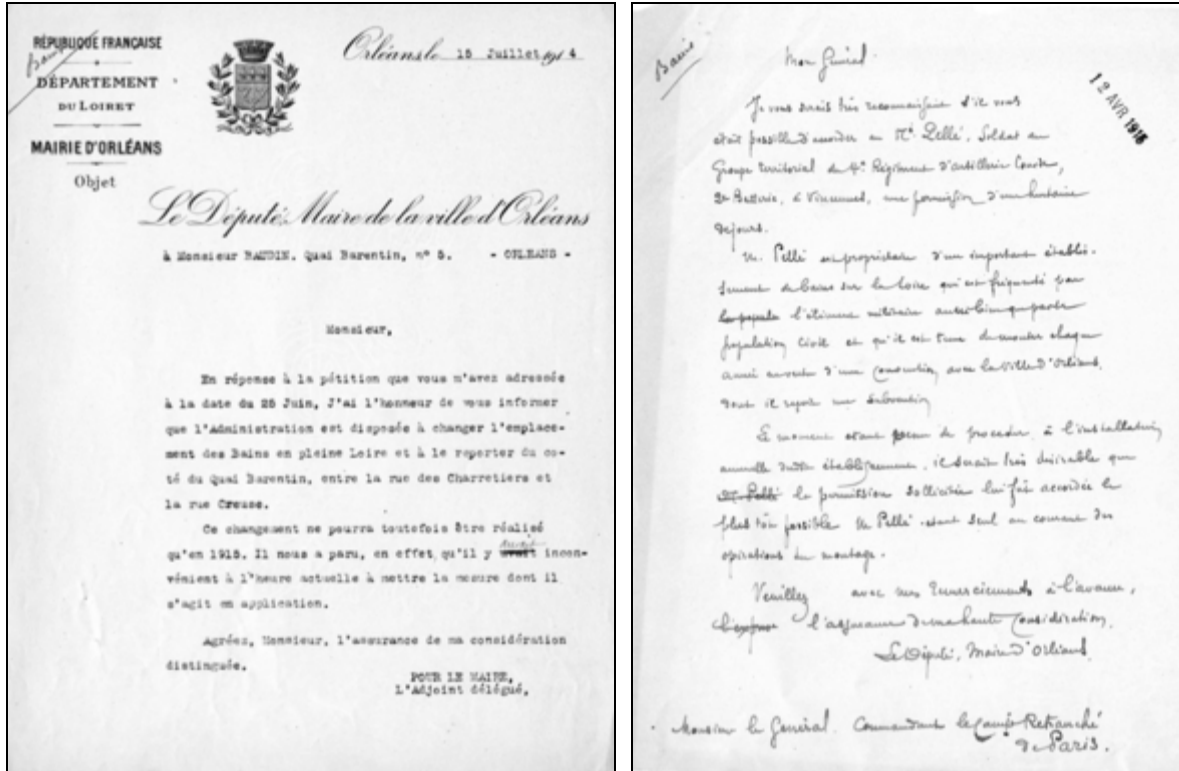 RÉPUBLIQUE FRANÇAISE
DÉPARTEMENT
DU LOIRET
MAIRIE D'ORLÉANS
Objet
Orléans, le 15 Juillet 1914
Le Député, Maire de la ville d'Orléans
à Monsieur BAUDIN, Quai Barentin, n° 5. - ORLEANS -
Monsieur,
En réponse à la pétition que vous m'avez adressée
à la date du 25 Juin, J'ai l'honneur de vous informer
que l'Administration est disposée à changer l'emplace-
ment des Bains en pleine Loire et à le reporter du co-
té du Quai Barentin, entre la rue des Charretiers et
la rue Creuse.
Ce changement ne pourra toutefois être réalisé
qu'en 1915. Il nous a paru, en effet, qu'il y avait incon-
vénient à l'heure actuelle à mettre la mesure dont il
s'agit en application.
Agréez, Monsieur, l'assurance de ma considération
distinguée.
POUR LE MAIRE,
L'Adjoint délégué,
Bains
12 AVR 1915
Mon Général
Je vous serais très reconnaissant s'il vous
était possible d'accorder au Mr Pellé, Soldat au
Groupe territorial du 4e Régiment d'artillerie
2e Batterie, à Vincennes, une permission d'une huitaine
de jours.
M. Pellé est propriétaire d'un important établis-
sement de bains sur la Loire qui est fréquenté par
l'élément militaire aussi bien que par la
population civile et qu'il est tenu de monter chaque
année en vertu d'une convention avec la Ville d'Orléans,
dont il reçoit une subvention
Le moment étant venu de procéder à l'installation
annuelle dudit établissement, il serait très désirable que
M. Pellé la permission sollicitée lui fût accordée le
plus tôt possible M. Pellé étant seul au courant des
opérations du montage.
Veuillez avec mes remerciements à l'avance,
l'assurance de ma haute considération,
Le Député, Maire d'Orléans
Monsieur le Général Commandant le Camp Retranché
de Paris.